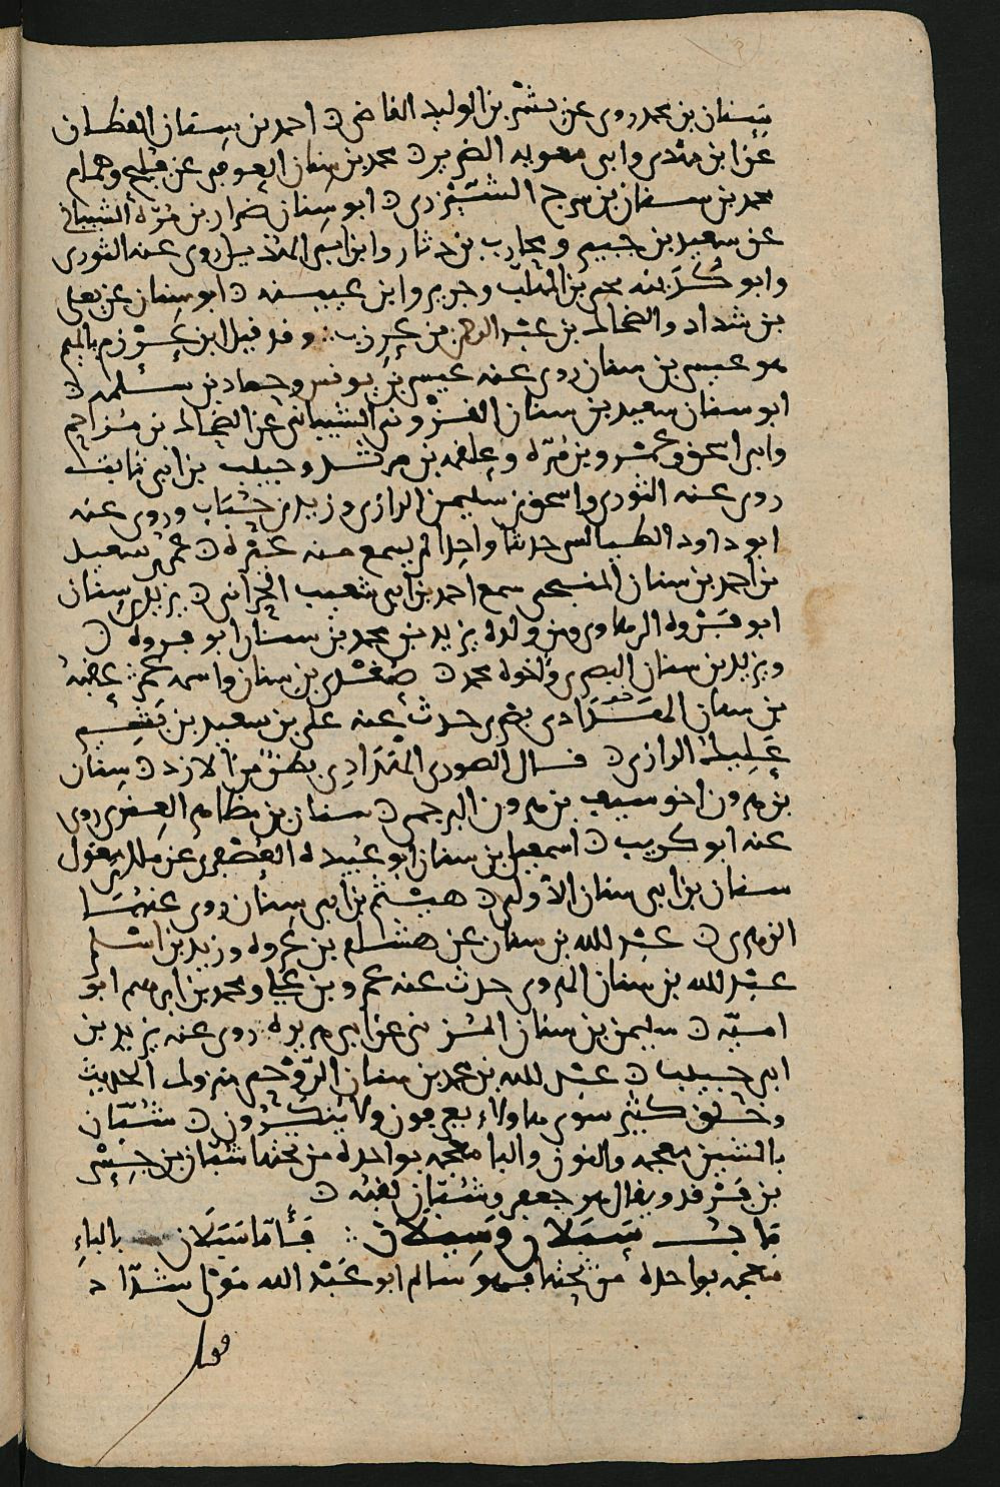 سنان بن محمد روى عن بشر بن الوليد القاضي ن احمد بن سنان القطان
عن ابن مهدي وابي معويه الضرير ن محمد بن سنان العوقي عن فليح وهمام
محمد بن سنان بن سرج الشيزري ن ابو سنان ضرار بن مرة الشيباني
عن سعيد بن جبير ومحارب بن دثار وابن ابي الهذيل روى عنه الثوري
وابو كدينه يحيى بن المهلب وجرير وابن عيينه ن ابو سنان عن يعلى
بن شداد والضحاك بن عبد الرحمن بن عرزب وقد قيل ابن عرزم بالميم
هو عيسى بن سنان روى عنه عيسى بن يونس وحماد بن سلمه ن
ابو سنان سعيد بن سنان القزويني الشيباني عن الضحاك بن مزاحم
وابي اسحق وعمرو بن مرة وعلقمه بن مرثد وحبيب بن ابي ثابت
روى عنه الثوري واسحق بن سليمن الرازي وزيد بن حباب وروى عنه
ابو داود الطيالسي حديثا واحدا لم يسمع منه غيره ن عمر بن سعيد
بن احمد بن سنان المنبجي سمع احمد بن ابي شعيب الحراني ن يزيد بن سنان
ابو فروه الرهاوي ومن ولده يزيد بن محمد بن سنان ابو فروه ن
ويزيد بن سنان البصري واخوه محمد ن صغدي بن سنان واسمه عمر عقبة
بن سنان بصري حدث عنه علي بن سعيد بن بشير
عليك الرازي ن قال الصوري بطن من الازد ن سنان
بن هرون اخو سيف بن هرون البرجمي ن سنان بن مظاهر العنزي روى
عنه ابو كريب ن اسمعيل بن سنان ابو عبيدة العصفري عن ملك بن مغول
سنان بن ابي سنان الدولي ن هيثم بن ابي سنان روى عنهما
الزهري ن عبد الله بن سنان عن هشام بن عروه وزيد بن اسلم
عبد الله بن سنان الهروي حدث عنه عمرو بن علي ومحمد بن ابرهيم ابو
اميه ن سليمن بن سنان المزني عن ابي هريرة روى عنه يزيد بن
ابي حبيب ن عبد الله بن محمد بن سنان الروحي متروك الحديث
وخلق كثير سوى هاولاء يعرفون ولا ينكرون ن شنبان
بالشين معجمه والنون والبا معجمه بواحدة من تحتها شنبان بن جسر
بن فرقد ويقال هو جعفر وشنبان لقبه ن
باب سبلان وسيلان فاما سبلان بالباء
معجمه بواحده من تحتها فهو سالم ابو عبد الله مولى شداد